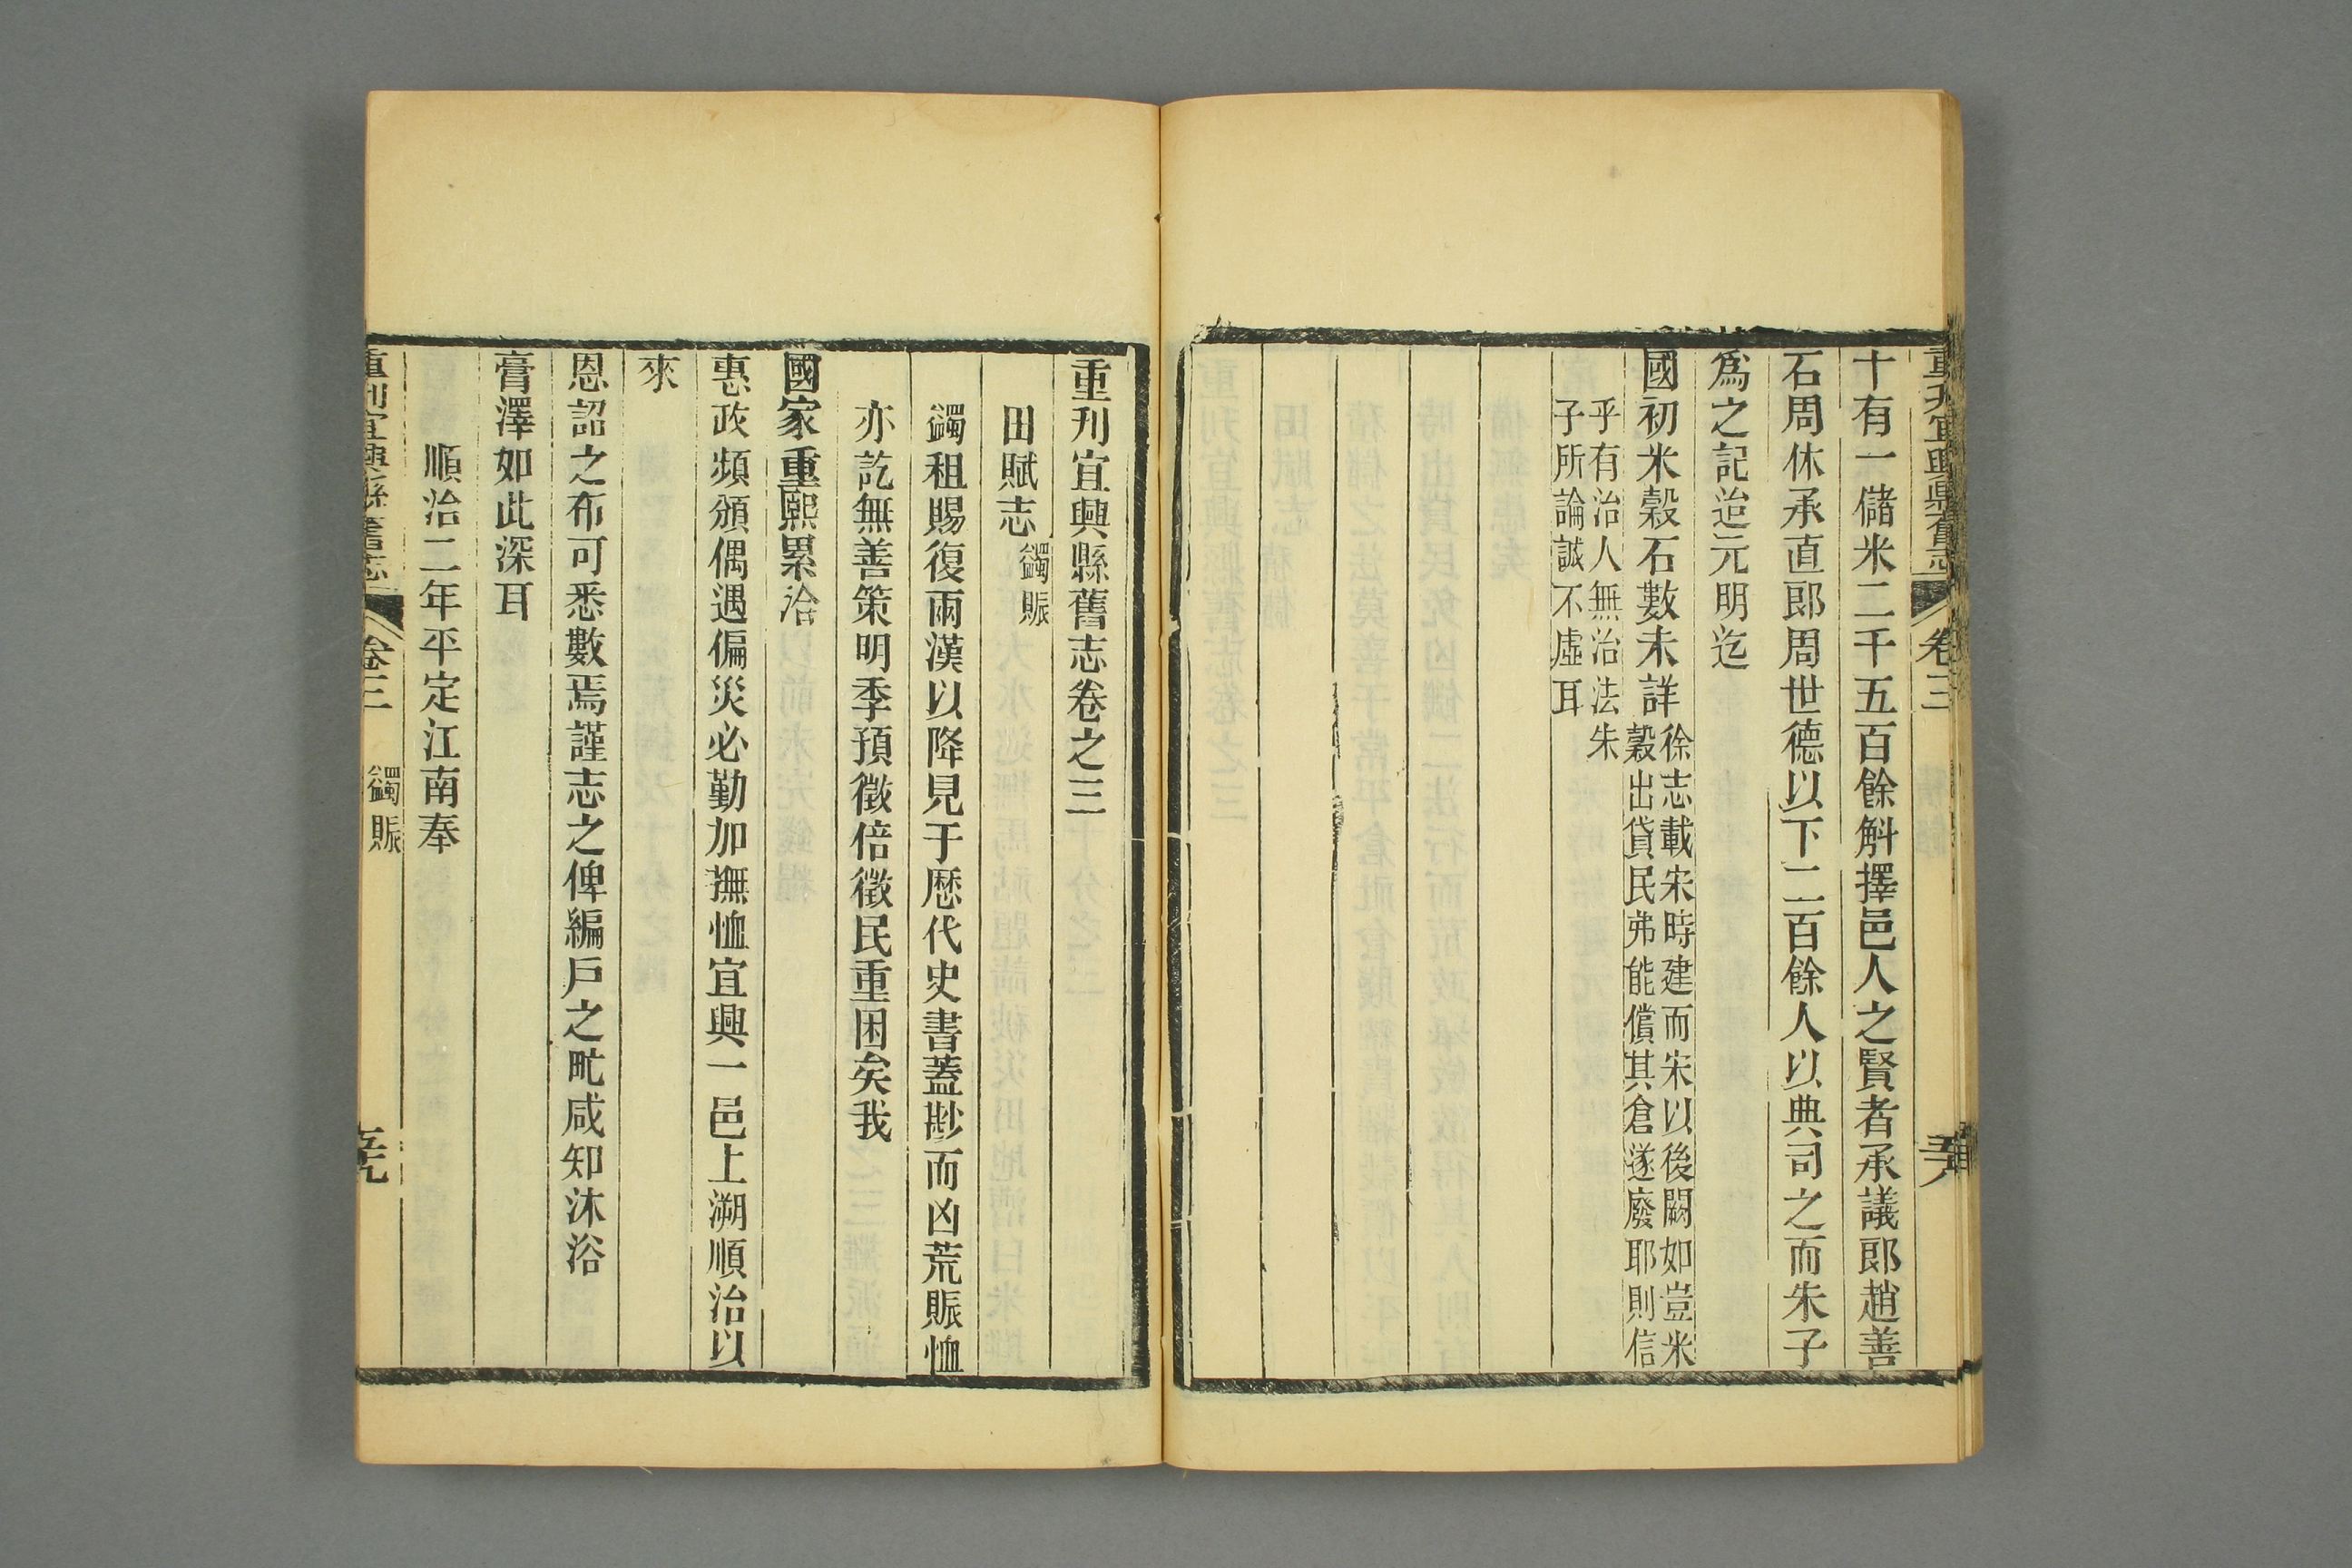 重刋宜興縣舊志
卷三
十有一儲米二千五百餘斛擇邑人之賢者承議郎趙善
石周休承直郎周世德以下二百餘人以典司之而朱子
爲之記迨元明迄
國初米穀石數未詳
徐志載宋時建而宋以後闕如豈米
穀出貸民弗能償其倉遂廢耶則信
乎有治人無治法朱
子所論誠不虛耳
重刋宜興縣舊志卷之三
田賦志
蠲賑
蠲租賜復兩漢以降見于歷代史書葢尠而凶荒賑恤
亦訖無善策明季預徵倍徵民重困矣我
國家重熙累洽
惠政頻頒偶遇偏災必勤加撫恤宜興一邑上溯順治以
來
恩詔之布可悉數焉謹志之俾編戸之甿咸知沐浴
膏澤如此深耳
順治二年平定江南奉
重刋宜興縣舊志
卷三
蠲賑